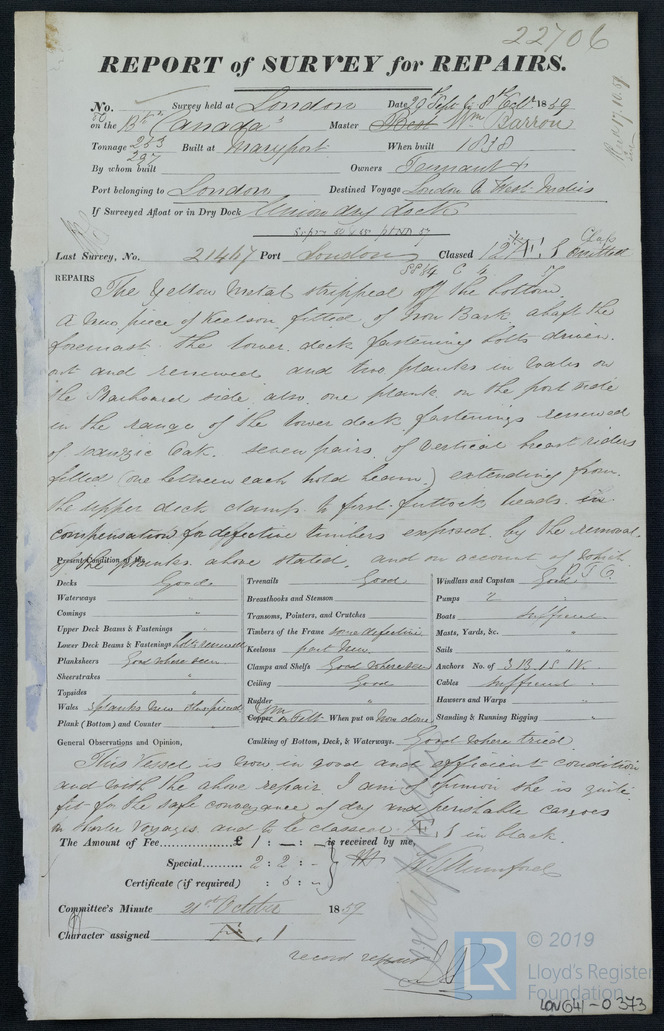 22706
REPORT of SURVEY for REPAIRS.
No. Survey held at London Date 23 Sept to 8th Octr 1859
on the Bk "Canada" Master Wm Barron
Tonnage 253 Built at Maryport When built 1838
297
By whom built Owners Tennant &
Port belonging to London Destined Voyage London to West Indies
If Surveyed Afloat or in Dry Dock Union dry dock
Last Survey, No. 21467 Port London Classed 12 omitted
REPAIRS The Yellow Metal stripped off the bottom
A new piece of Keelson fitted of Iron Bark abaft the
foremast. the lower deck fastening bolts driven
out and renewed, and two planks in wales on
the Starboard side also one plank on the port side
in the range of the lower deck fastenings renewed
of Danzic Oak. seven pairs of vertical breast riders
fitted (one between each hold beam) extending from
the upper deck clamps to first futtock heads in
compensation for defective timbers exposed by the removal
of the planks above stated, and on account of which
P.T.O.
Present Condition of the
Decks Good
Waterways "
Comings "
Upper Deck Beams & Fastenings "
Lower Deck Beams & Fastenings bolts renewed
Planksheers Good where seen
Sheerstrakes "
Topsides "
Wales 3 planks new
Plank (Bottom) and Counter
Treenails Good
Breasthooks and Stemson "
Transoms, Pointers, and Crutches "
Timbers of the Frame some defective
Keelsons part New
Clamps and Shelfs Good where seen
Ceiling Good
Rudder "
Copper YM on Felt When put on Now done
Windlass and Capstan Good
Pumps "
Boats Sufficient
Masts, Yards, &c. "
Sails "
Anchors No. of 3 B. 1 S 1 K.
Cables Sufficient
Hawsers and Warps "
Standing & Running Rigging "
General Observations and Opinion, Caulking of Bottom, Deck, & Waterways. Good where tried
This Vessel is now in good and efficient condition
and with the above repair I am of opinion she is quite
fit for the safe conveyance of dry and perishable cargoes
on shorter Voyages and to be classed Æ, 1 in black.
The Amount of Fee............£ 1 : — : — is received by me,
Special............ 2 : 2 : —
Certificate (if required) : 5 : —
Committee's Minute 21st October 1859
Character assigned Æ, 1
record repairs
© 2019
LR Lloyd's Register
Foundation
LON641-0373